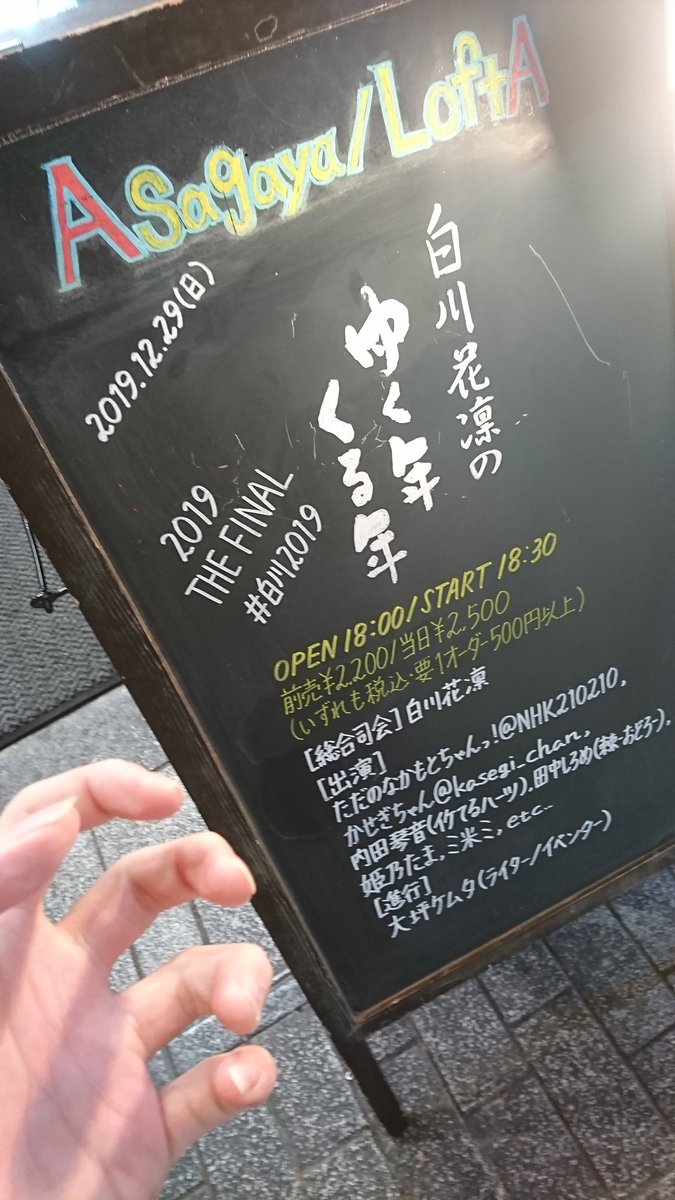 Asagaya/LoftA
2019.12.29(日)
白川花凛の
ゆく年
くる年
2019
THE FINAL
#白川2019
OPEN 18:00/START 18:30
前売¥2,200/当日¥2,500
(いずれも税込・要1オーダー500円以上)
[総合司会]白川花凛
[出演]
ただのなかもとちゃんっ!@NHK210210,
かせぎちゃん@kasegi_chan,
内田琴音(イケてるハーツ),田中しろめ(・おどろー),
姫乃たま,ミ米ミ,etc..
[進行]
大坪ケムタ(ライター/イベンター)